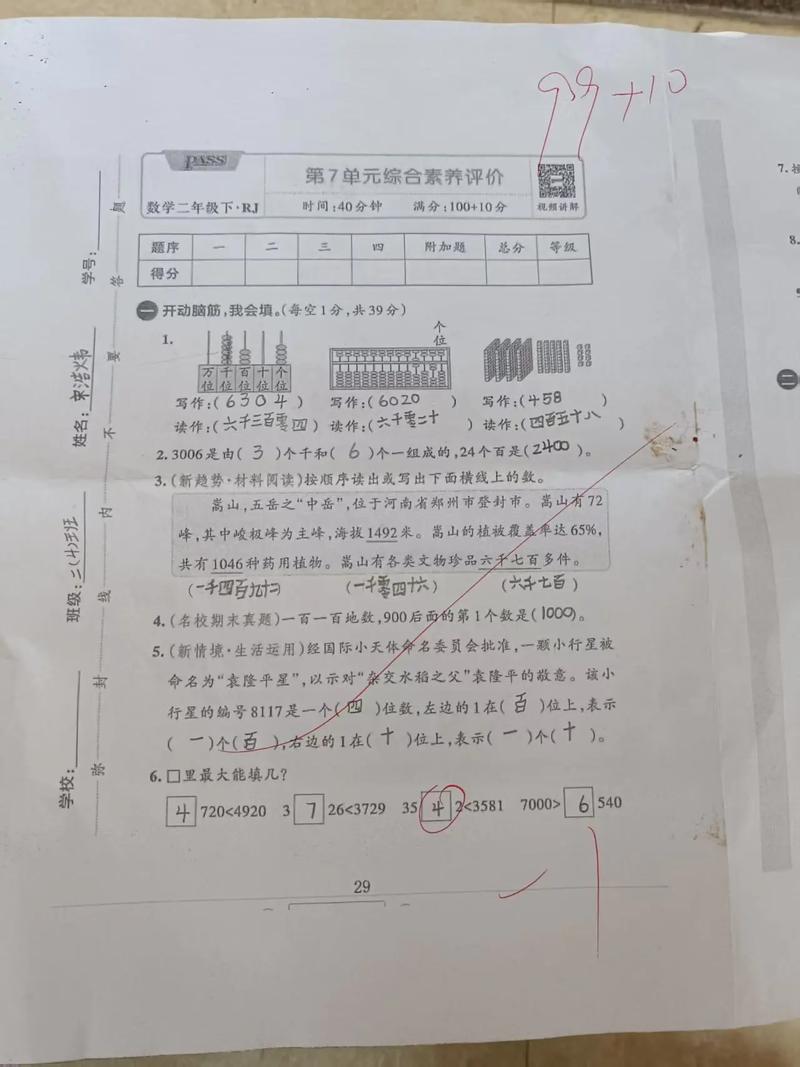 99+10
PASS
第7单元综合素养评价
数学二年级下·RJ
时间:40分钟 满分:100+10分
视频讲解
题序 一 二 三 四 附加题 总分 等级
得分
一 开动脑筋,我会填。(每空1分,共39分)
1.
个位
万位 千位 百位 十位 个位
写作:(6304) 写作:(6020) 写作:(458)
读作:(六千三百零四) 读作:(六千零二十) 读作:(四百五十八)
2. 3006是由(3)个千和(6)个一组成的,24个百是(2400)。
3. (新趋势·材料阅读)按顺序读出或写出下面横线上的数。
嵩山,五岳之“中岳”,位于河南省郑州市登封市。嵩山有72
峰,其中峻极峰为主峰,海拔1492米。嵩山的植被覆盖率达65%,
共有1046种药用植物。嵩山有各类文物珍品六千七百多件。
(一千四百九十二) (一千零四十六) (六千七百)
4. (名校期末真题)一百一百地数,900后面的第1个数是(1000)。
5. (新情境·生活运用)经国际小天体命名委员会批准,一颗小行星被
命名为“袁隆平星”,以示对“杂交水稻之父”袁隆平的敬意。该小
行星的编号8117是一个(四)位数,左边的1在(百)位上,表示
(一)个(百),右边的1在(十)位上,表示(一)个(十)。
6. □里最大能填几?
4 720<4920 3 7 26<3729 35 4 2<3581 7000> 6 540
-1
29
学校:
班级:二(4)班
姓名:
学号:
弥 封 线 内 不 要 答 题
7.
8.
二